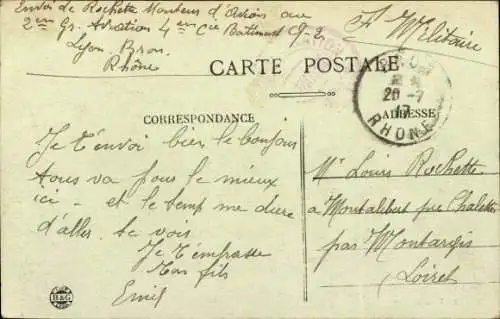 Envoi de Rochette Monteur d'Avions au
2em Gr. Aviation 4em Cie Batiment G-2
Lyon. Bron.
Rhône
F Militaire
CARTE POSTALE
20-7
17
RHONE
CORRESPONDANCE
ADRESSE
Je t'envoi bien le bonjour
tous va pour le mieux
ici - et le temp me dure
d'aller te voir
Je t'embrasse
ton fils
Emil
Mr Louis Rochette
a Montalibut pre Chalette
par Montargis
Loiret
B&G